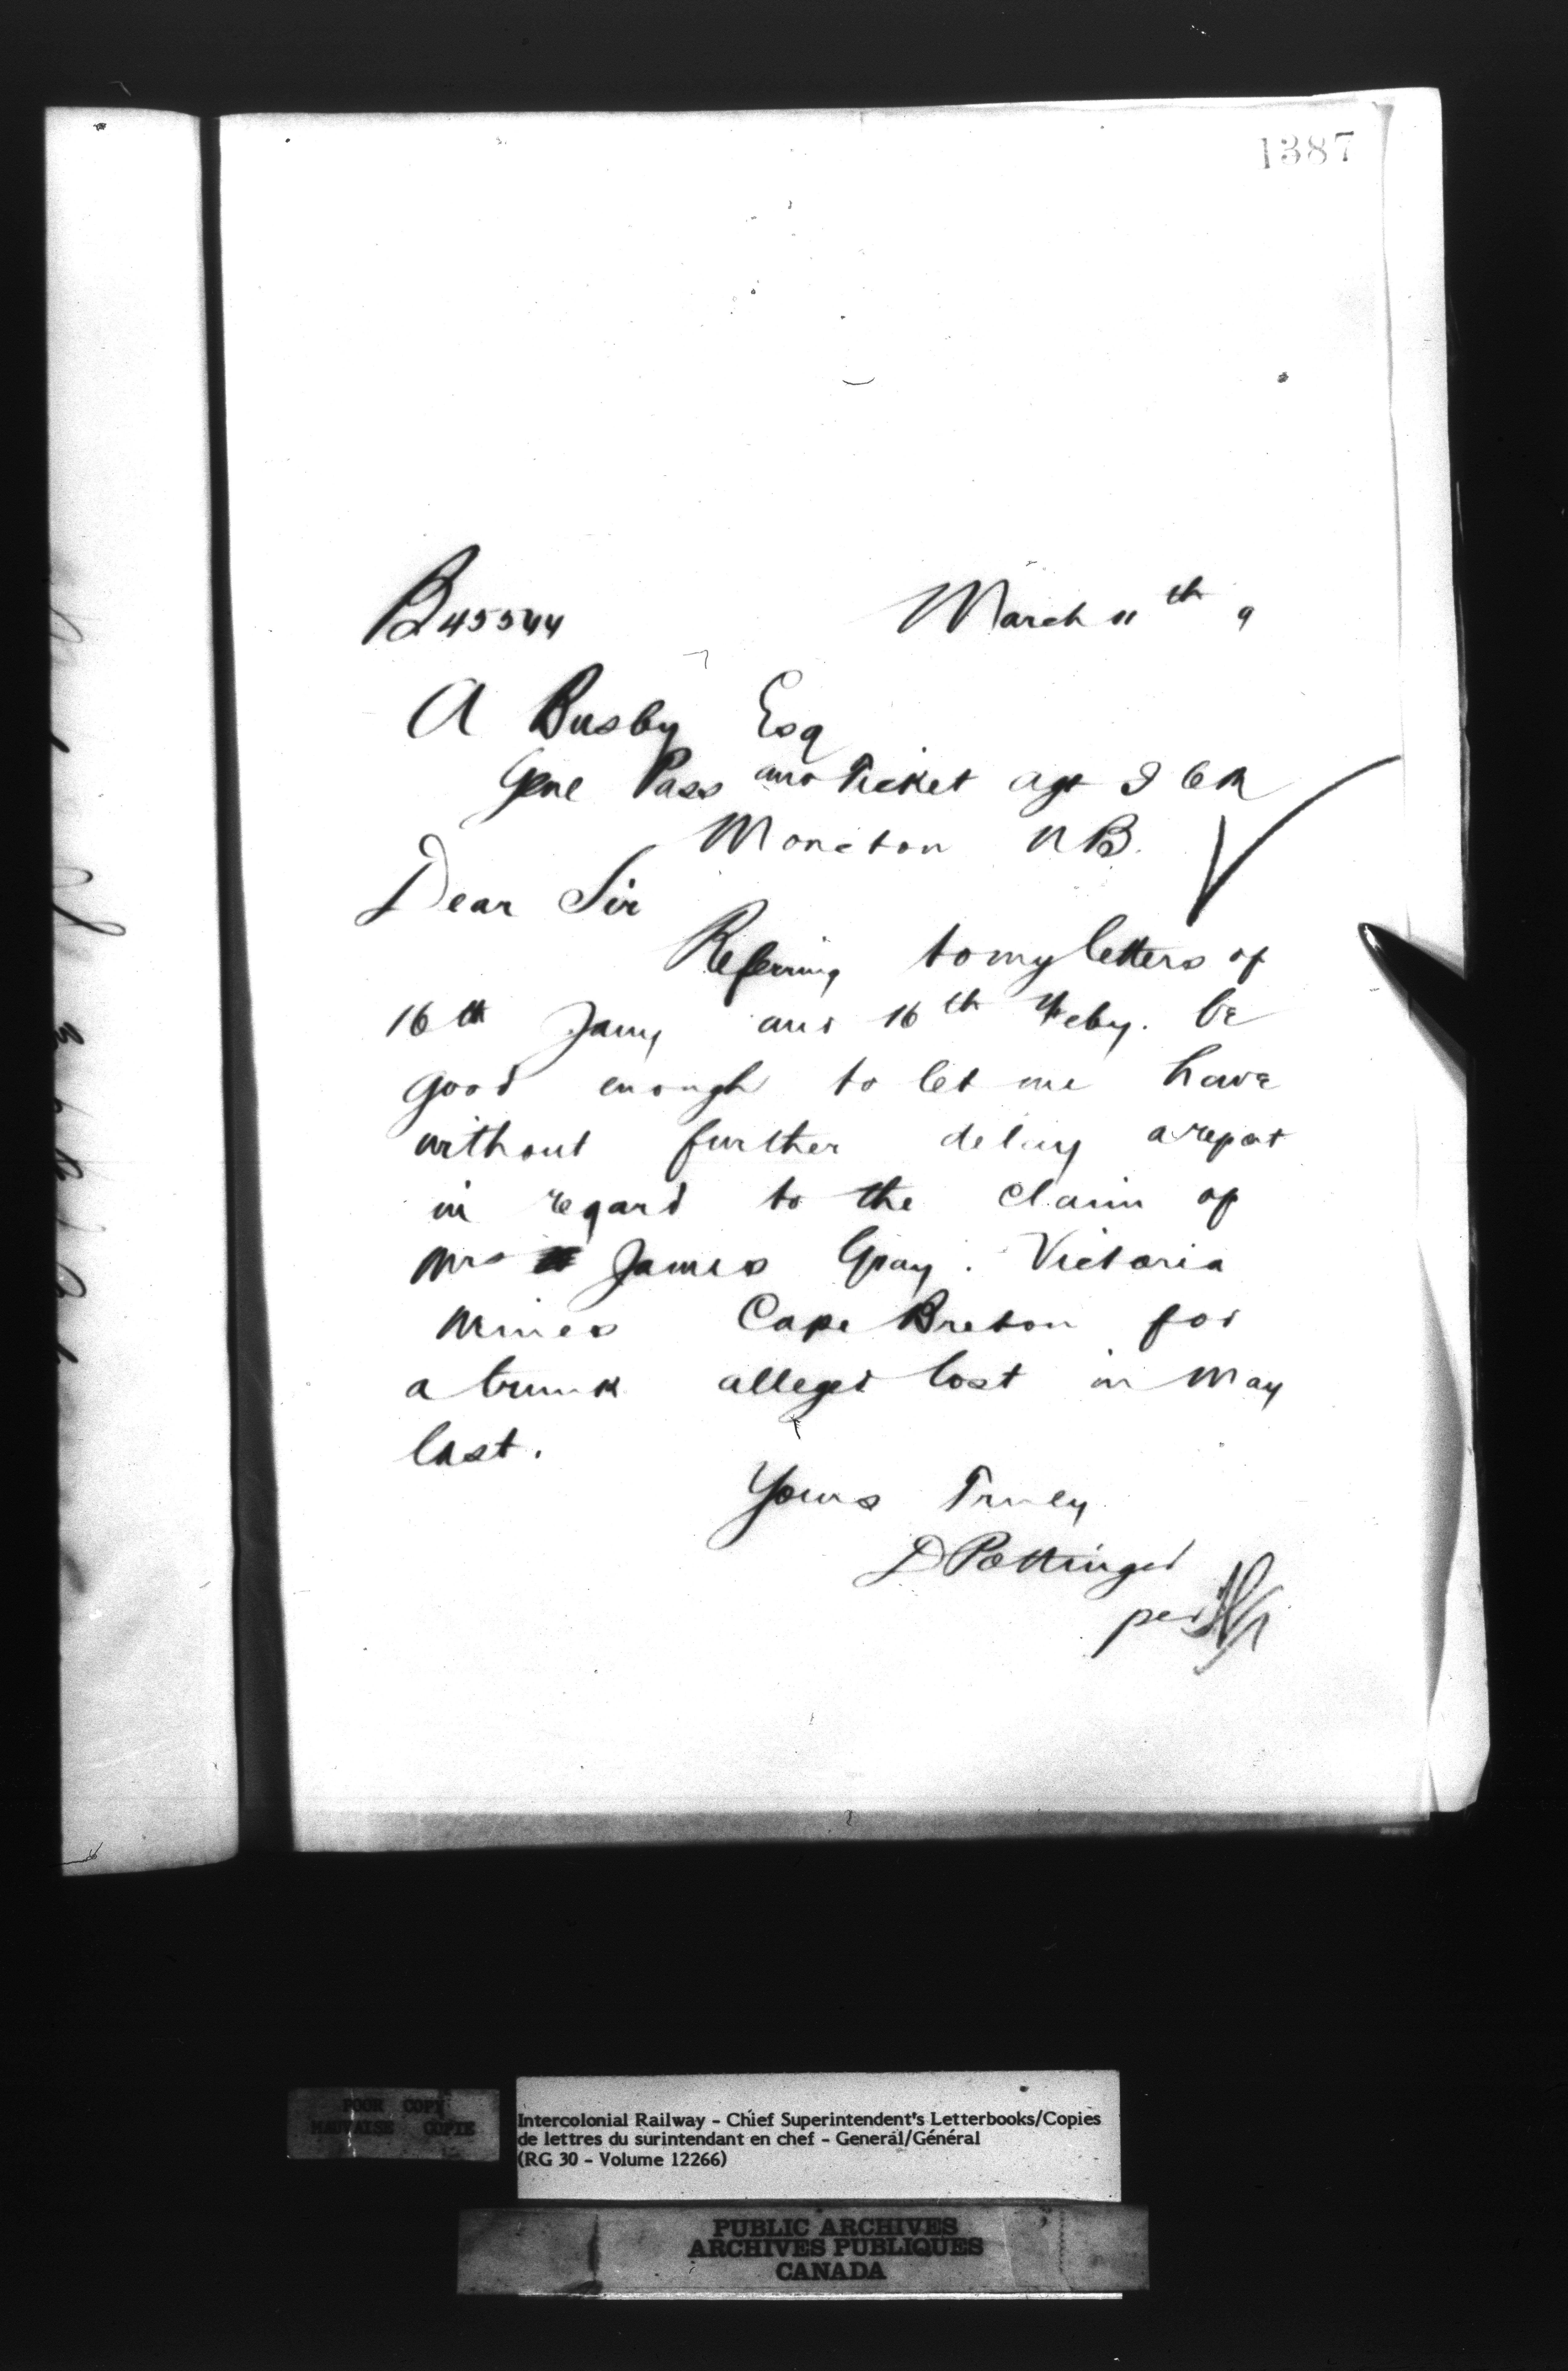 1387
B 45544 March 11th 9
A Busby Esq
Genl Pass and Ticket agt I C R
Moncton N B.
Dear Sir
Referring to my letters of
16th Jany and 16th Feby. be
good enough to let me have
without further delay a report
in regard to the claim of
Mrs James Gray. Victoria
Mines Cape Breton for
a trunk alleged lost in May
last.
Yours Truly
D Pottinger
per
POOR COPY
MAUVAISE COPIE
Intercolonial Railway - Chief Superintendent's Letterbooks/Copies
de lettres du surintendant en chef - General/Général
(RG 30 - Volume 12266)
PUBLIC ARCHIVES
ARCHIVES PUBLIQUES
CANADA